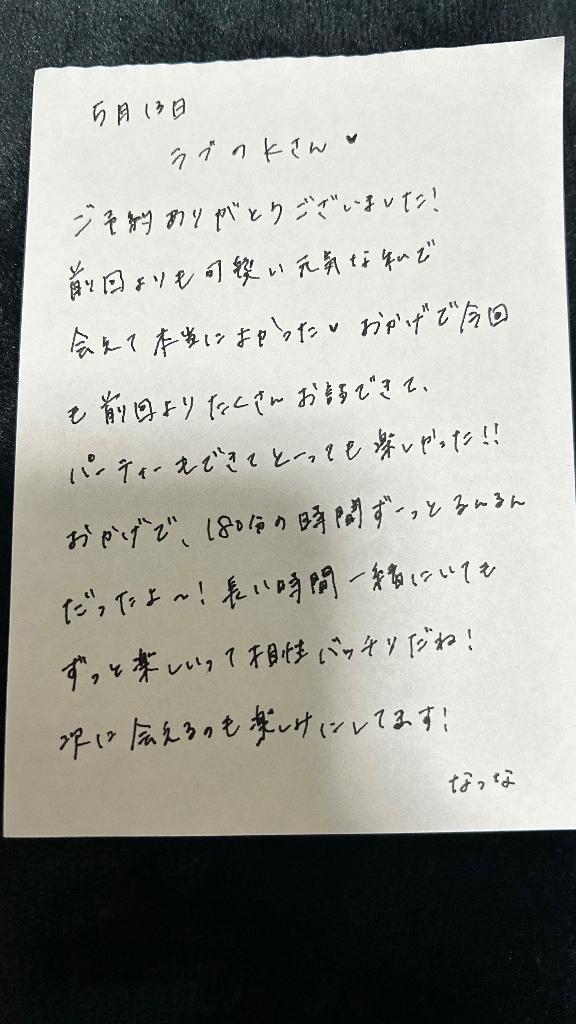 5月13日
ラブのKさん♥
ご予約ありがとうございました!
前回よりも可愛い元気な私で
会えて本当によかった♥ おかげで今回
も前回よりたくさんお話できて、
パーティーもできてとーっても楽しかった!!
おかげで、180分の時間ずーっとるんるん
だったよ〜!長い時間一緒にいても
ずっと楽しいって相性バッチリだね!
次に会えるのも楽しみにしてます!
なつな